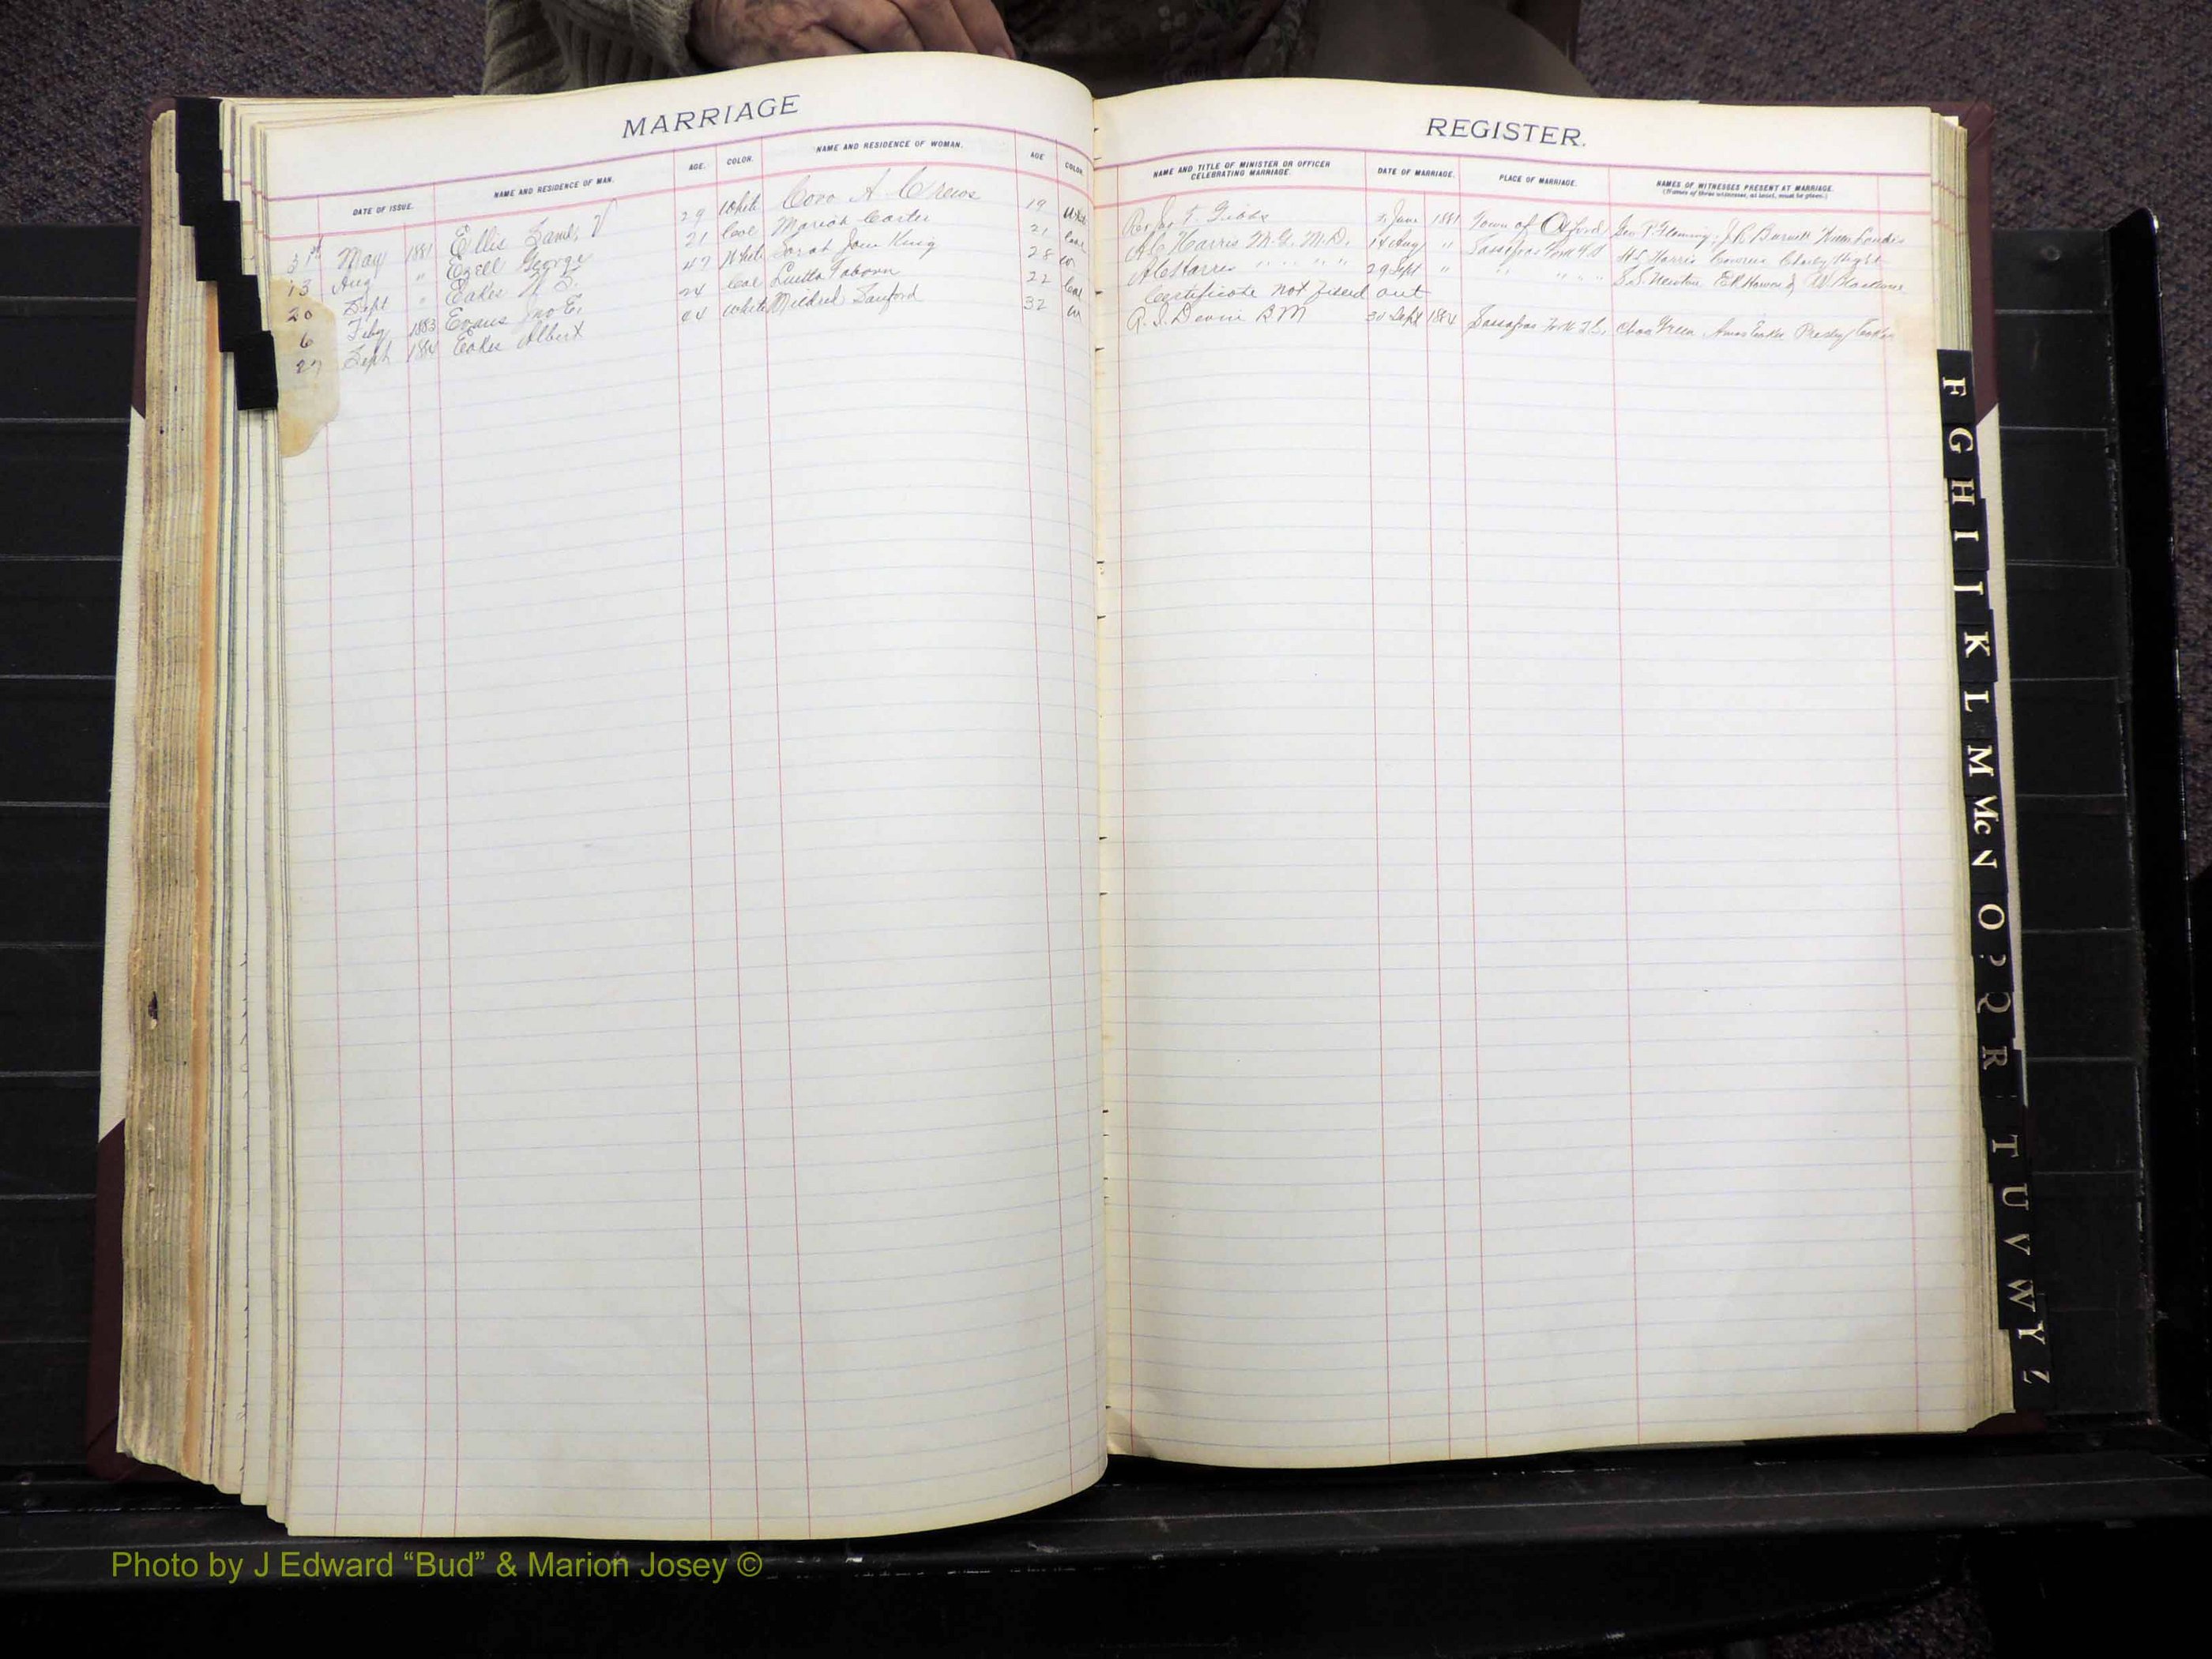 MARRIAGE
DATE OF ISSUE. NAME AND RESIDENCE OF MAN. AGE. COLOR. NAME AND RESIDENCE OF WOMAN. AGE COLOR.
31st May 1881 Ellis Saml. V 29 White A. Crews 19 White
13 Aug " Ezell George 21 Col Mariah Carter 21 Col
20 Sept " Eakes 47 White Sarah Jane King 28 W
6 Feby 1883 Evans Jno E. 24 Col Luetta Taborn 22 Col
27 Sept 1884 Eakes Albert 44 White Mildred Sanford 32 W
REGISTER.
NAME AND TITLE OF MINISTER OR OFFICER CELEBRATING MARRIAGE. DATE OF MARRIAGE. PLACE OF MARRIAGE. NAMES OF WITNESSES PRESENT AT MARRIAGE.
(Names of three witnesses, at least, must be given.)
Gibbs June 1881 Town of Oxford Geo. Fleming; J R Burwell Landis
A C Harris M.G. M.D. 14 Aug " Sassafras Harris Charley Hight
A C Harris " " " " 29 Sept " " " " " Newton
Certificate not filled out
R. I. Devin B M 30 Sept 1884 Sassafras Chas Green Amos Presley
F
G
H
I
J
K
L
M
Mc
N
O
P
Q
R
T
U
V
W
Y
Z
Photo by J Edward “Bud” & Marion Josey ©